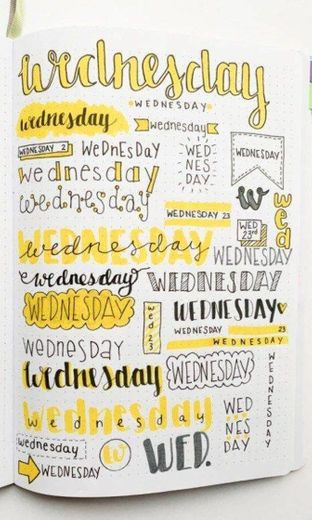 wednesday
WEDNESDAY
wednesday
wednesday
WEDNESDAY 2
WEDNESDAY
WED
NES
DAY
WEDNESDAY
wednesday
wednesday
w
wed
WEDNESDAY 23
WED
23rd
WEDNESDAY
wednesday
WEDNESDAY
wednesday
WEDNESDAY
WEDNESDAY
wed 23
WEDNESDAY
WEDNESDAY 23
WEDNESDAY
wednesday
WEDNESDAY
WEDNESDAY
wednesday
wednesday
wednesday
WED
NES
DAY
wednesday
W
WED.
WEDNESDAY